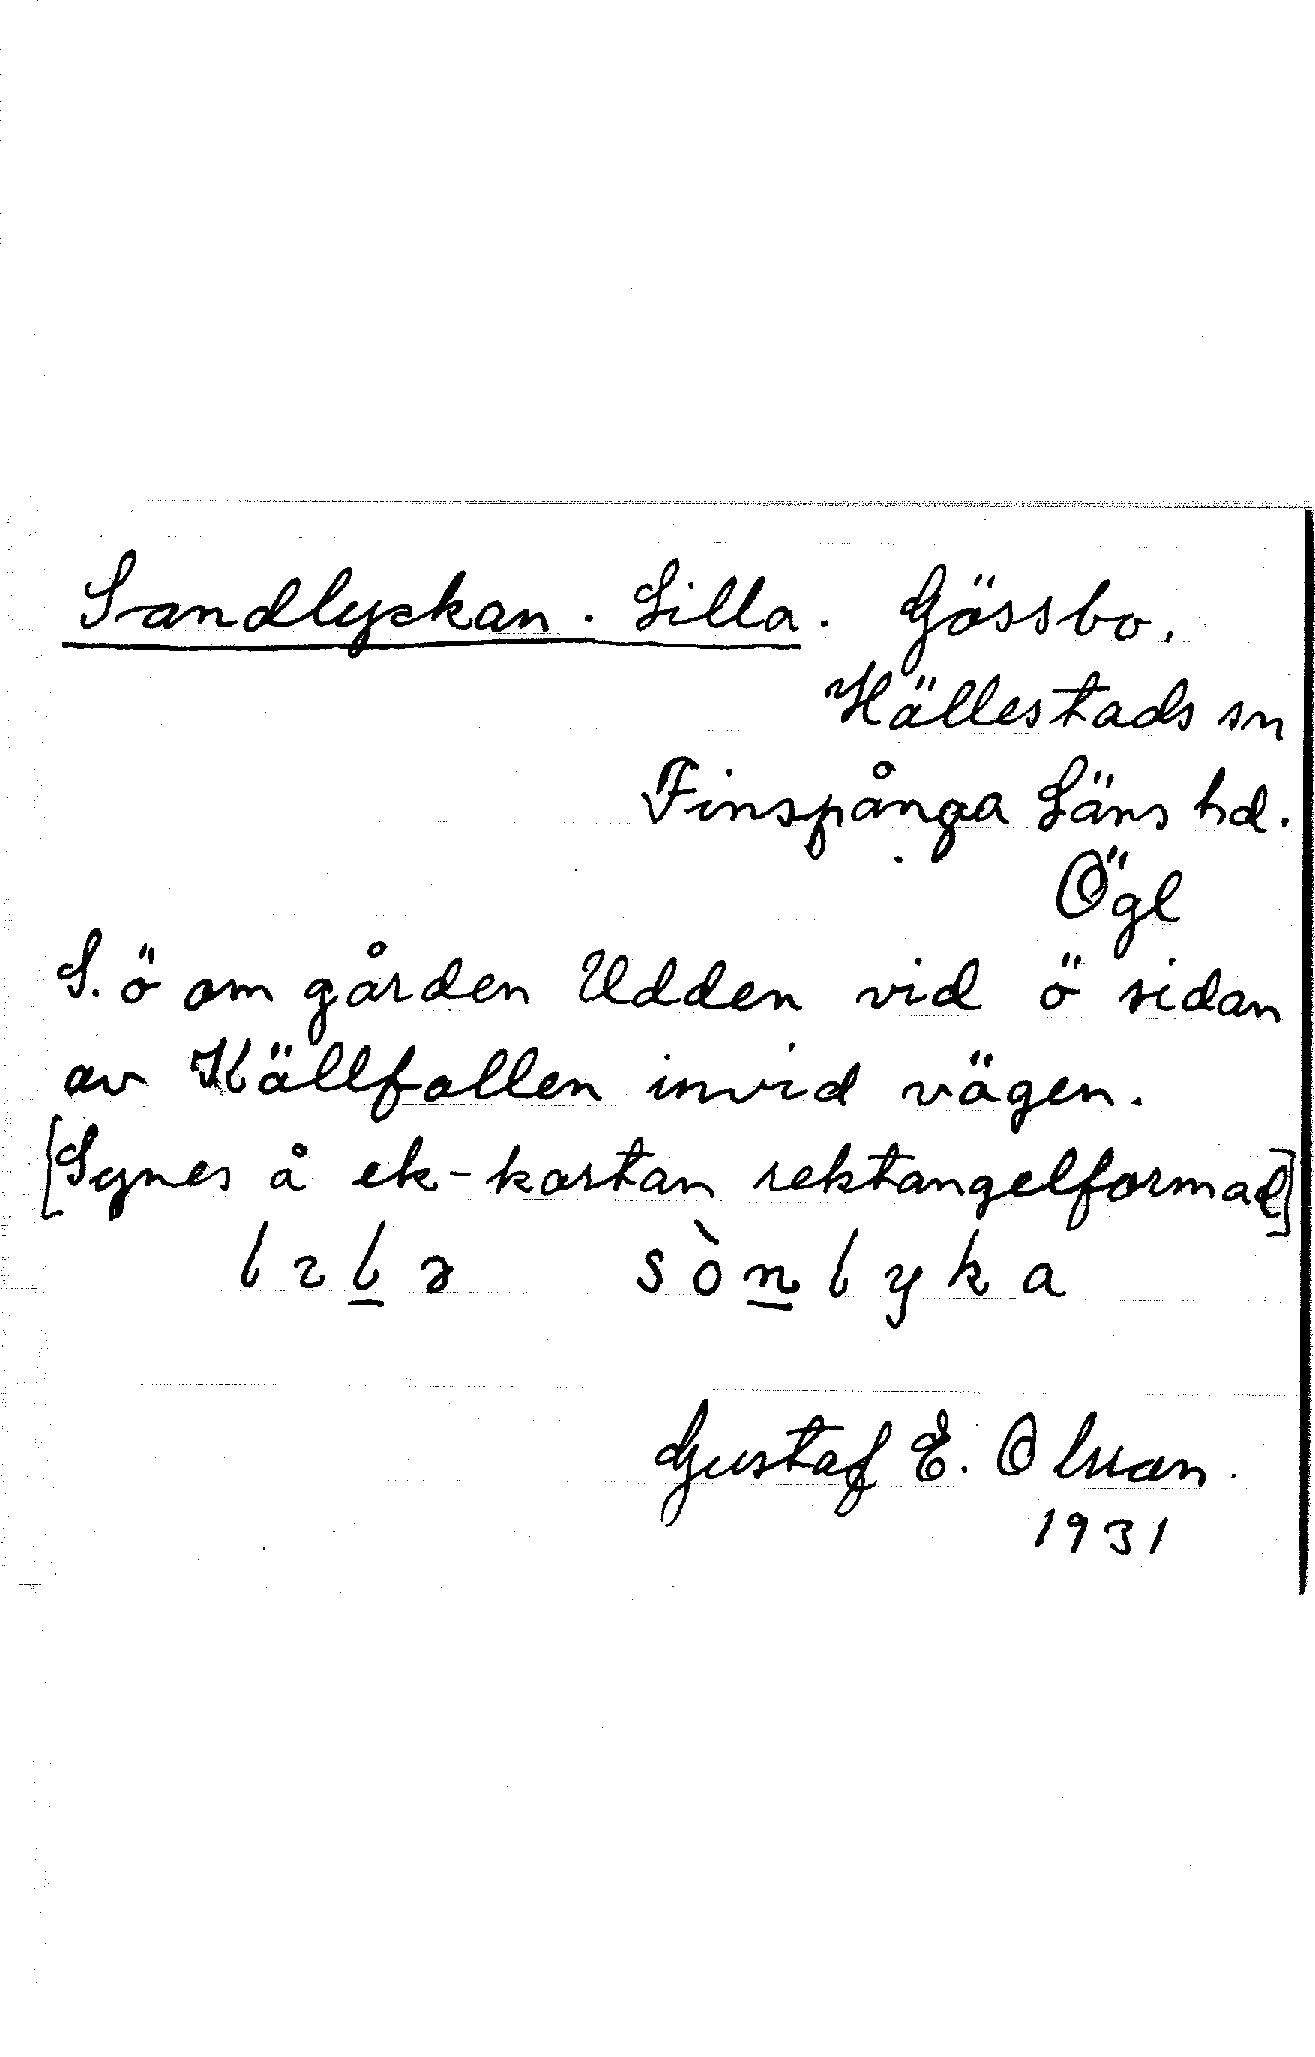 Sandlyckan. Lilla. Gössbo.
Hällestads sn
Finspånga Läns hd.
Ögl
S. ö om gården Udden vid ö sidan
av Källfallen invid vägen.
[Synes å ek-kartan rektangelformad]
lɩlə sònlyka
Gustaf E. Olsson.
1931